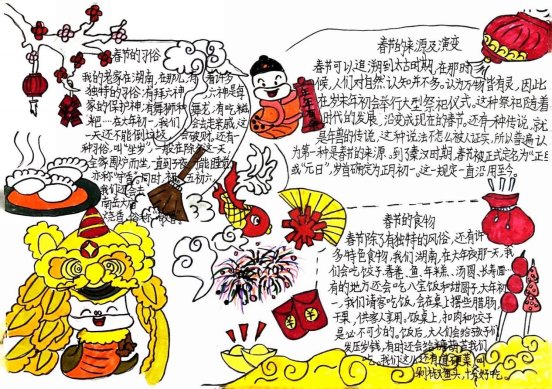 春节的习俗
我的老家在湖南,在那儿有着许多
独特的习俗,有拜六神…,六神是每
家的保护神;有舞狮神舞龙;有吃糍
粑…在大年初一,我们会去走亲戚,这
一天还不能倒垃圾,会破财,还有一
种习俗,叫"坐岁"一般在除夕这一天,
全家围炉而坐,一直到子夜才能睡觉
亦称"守岁"。同时,初五初六,
我们还会去
南岳大庙
烧香,俗称"敬香"。
年年有余
春节的来源及演变
春节可以追溯到太古时期,在那时
候,人们对自然认知并不多。认为万物皆有灵,因此
在岁末年初会举行大型祭祀仪式。这种祭祀随着
时代的发展,沿变成现在的春节,还有一种传说,就
是年兽的传说,这种说法不怎么被人证实,所以普遍认
为第一种是春节的来源。到了秦汉时期,春节被正式定名为"正旦
或"元日",岁首确定为正月初一,这一规定一直沿用至今。
春节的食物
春节除了有独特的风俗,还有许
多特色食物,我们湖南,在大年夜那一天,我
们会吃饺子、春卷、鱼、年糕、汤圆、长寿面…
有的地方还会吃八宝饭和甜圆子,大年初
一,我们请客吃饭,会在桌上摆些腊肠、
干果,供客人享用。饭桌上,扣肉和饺子
是必不可少的。饭后,大人们会给孩子们
发压岁钱,有时还会给糖葫芦我们
吃。我们这儿还有道硬菜,叫
剁椒鱼头,十分好吃。